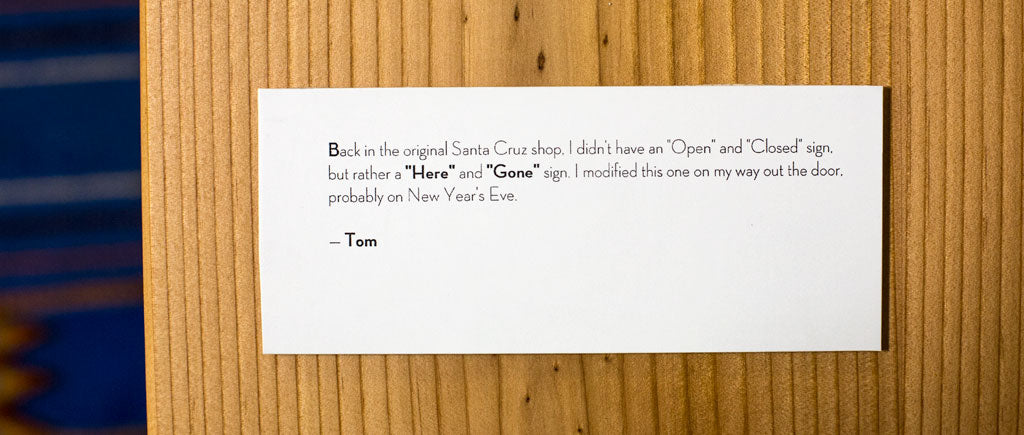 Back in the original Santa Cruz shop, I didn't have an "Open" and "Closed" sign,
but rather a "Here" and "Gone" sign. I modified this one on my way out the door,
probably on New Year's Eve.
— Tom